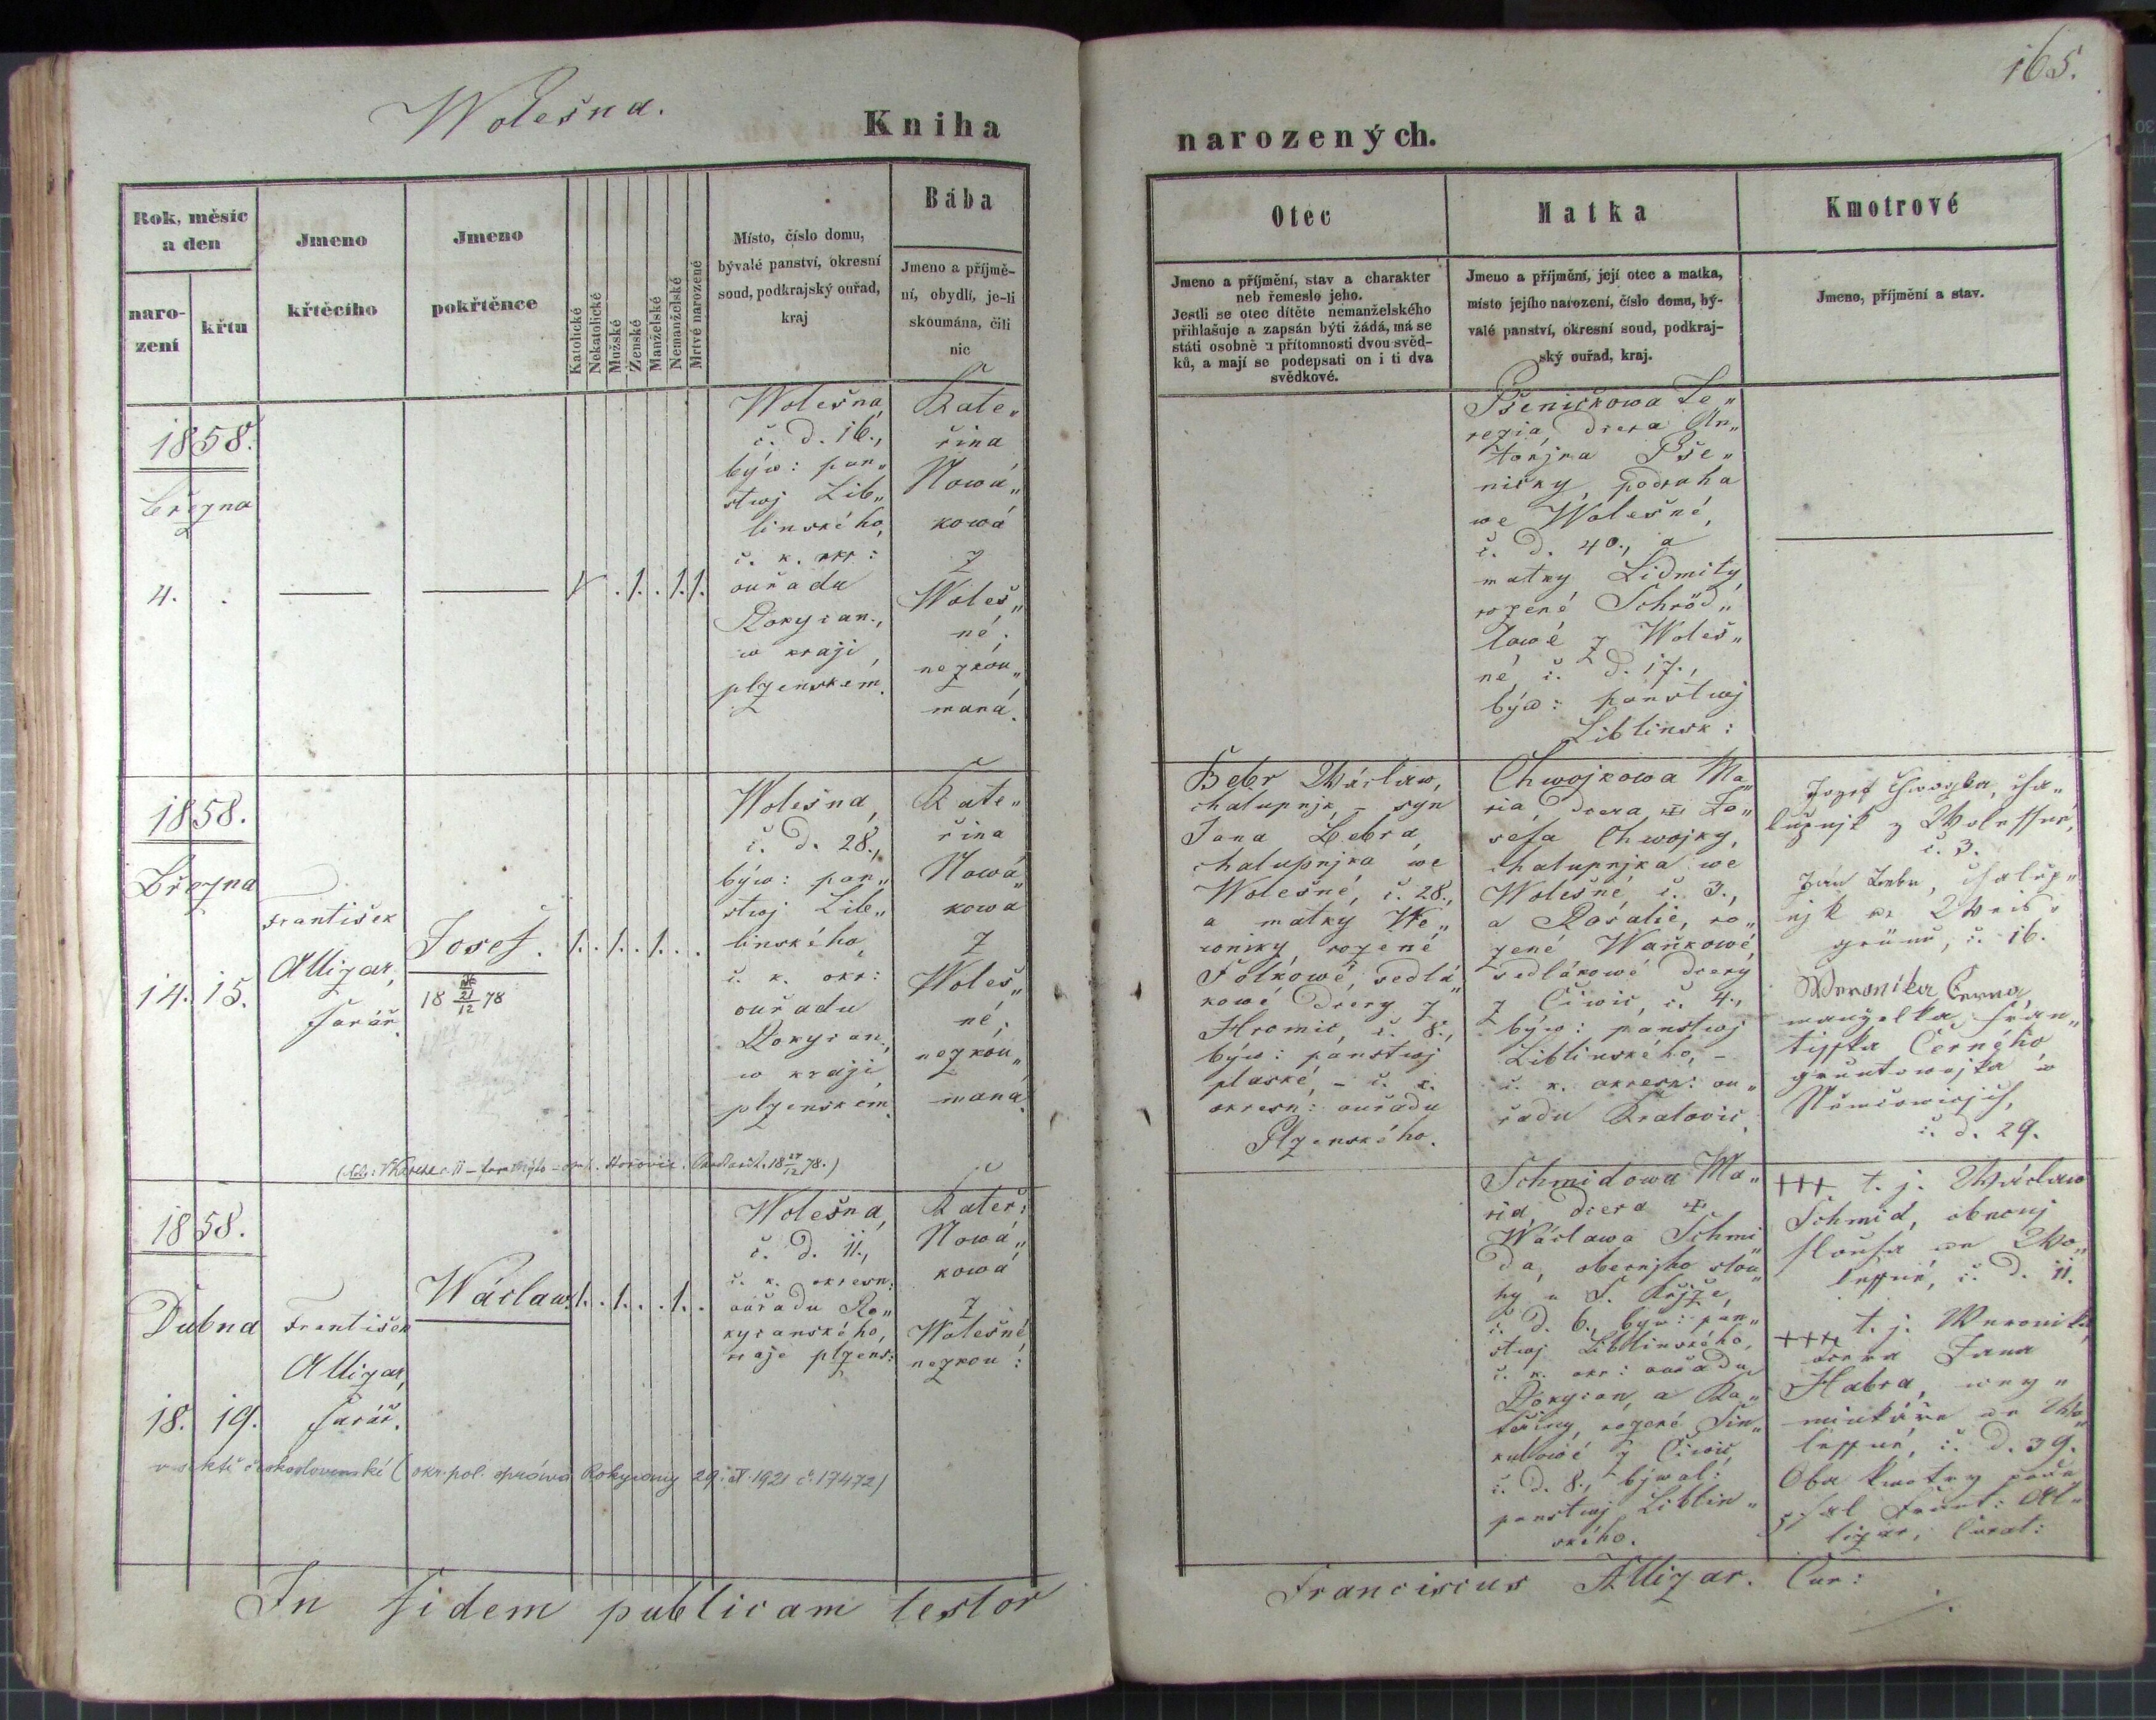 Wolešna.
Kniha
Rok, měsíc
a den
naro-
zení
křtu
Jmeno
křtěcího
Jmeno
pokřtěnce
Katolické
Nekatolické
Mužské
Ženské
Manželské
Nemanželské
Mrtvé narozené
Místo, číslo domu,
bývalé panství, okresní
soud, podkrajský ouřad,
kraj
Bába
Jmeno a příjmě-
ní, obydlí, je-li
skoumána, čili
nic
1858.
Března
4.
Wolešna,
č. d. 16.,
býw: pan„
stwj Lib„
linského,
č. k. okr:
ouřadu
Rokycan.,
w kraji
plzenskem.
Kate„
řina
Nowá„
kowá
z
Woleš„
né,
nezkou„
maná.
1858.
Března
14. 15.
František
Alligar,
farář.
Josef.
18 21/12 78
1. . 1. . 1. . .
Wolešna,
č. d. 28.,
býw: pan„
stwj Lib„
linského,
č. k. okr:
ouřadu
Rokycan.,
w kraji
plzenskem.
Kate„
řina
Nowá„
kowá
z
Woleš„
né,
nezkou„
maná.
1858.
Dubna
18. 19.
František
Alligar,
farář.
Wáclaw.
1. . 1. . . 1. .
Wolešna,
č. d. 11.,
č. k. okresn:
ouřadu Ro„
kycanského,
kraje plzens:
Kateř:
Nowá„
kowá
z
Wolešné,
nezkou:
československé (okr. pol. správa Rokycany 29. 1921 č. 17472)
In fidem publicam testor
165.
narozených.
Otec
Jmeno a příjmění, stav a charakter
neb řemeslo jeho.
Jestli se otec dítěte nemanželského
přihlašuje a zapsán býti žádá, má se
státi osobně u přítomnosti dvou svěd-
ků, a mají se podepsati on i ti dva
svědkové.
Matka
Jmeno a příjmění, její otec a matka,
místo jejího narození, číslo domu, bý-
valé panství, okresní soud, podkraj-
ský ouřad, kraj.
Kmotrové
Jmeno, příjmění a stav.
Pšeničkowa Te„
rezia, dcera An„
tonjna Pše„
ničky, podruha
we Wolešné,
č. d. 40., a
matky Lidmily,
rozené Schröd„
lowé z Woleš„
né, č. d. 17.,
býw: panstwj
Liblinsk:
Bebr Wáclaw,
chalupnjk, – syn
Jana Bebra,
chalupnjka we
Wolešné, č. 28.,
a matky We„
roniky rozené
Folkowé, sedlá„
kowé dcery z
Hromic, č. 8.,
býw: panstwj
plaské, – č. k.
okresn: ouřadu
Plzenského.
Chwojkowa Ma„
ria, dcera Jo„
sefa Chwojky,
chalupnjka we
Wolešné, č. 3.,
a Rosalie, ro„
zené Waňkowé,
sedlákowé dcery
z Čiwic, č. 4.,
býw: panstwj
Liblinského, –
č. k. okresn: ou„
řadu Kralovic.
Jozef Chwojka, cha„
lupnjk z Wolessné,
č. 3.
Ján Bebr, chalup„
njk
č. 16.
Weronika Černá,
manželka Fran„
tisska Černého
gruntownjka w
Němčowicjch,
č. d. 29.
Schmidowa Ma„
ria, dcera
Wáclawa Schmi„
da, obecnjho slou„
hy u S. Křjže,
č. d. 6., býw: pan„
stwj Liblinského,
č. k. okr: ouřadu
Rokycan, a Ka„
teřiny, rozené Sin„
kulowé z Čiwic,
č. d. 8., býwal:
panstwj Liblin„
ského.
+++ t. j. Wáclaw
Schmid, obecnj
slouha we Wo„
lessné, č. d. 11.
+++ t. j. Weronika,
dcera Jana
Habra,
we Wo„
lessné, č. d. 39.
Oba kmotry pode„
psal Frant: Al„
ligar, Curat:
Franciscus Alligar. Cur: